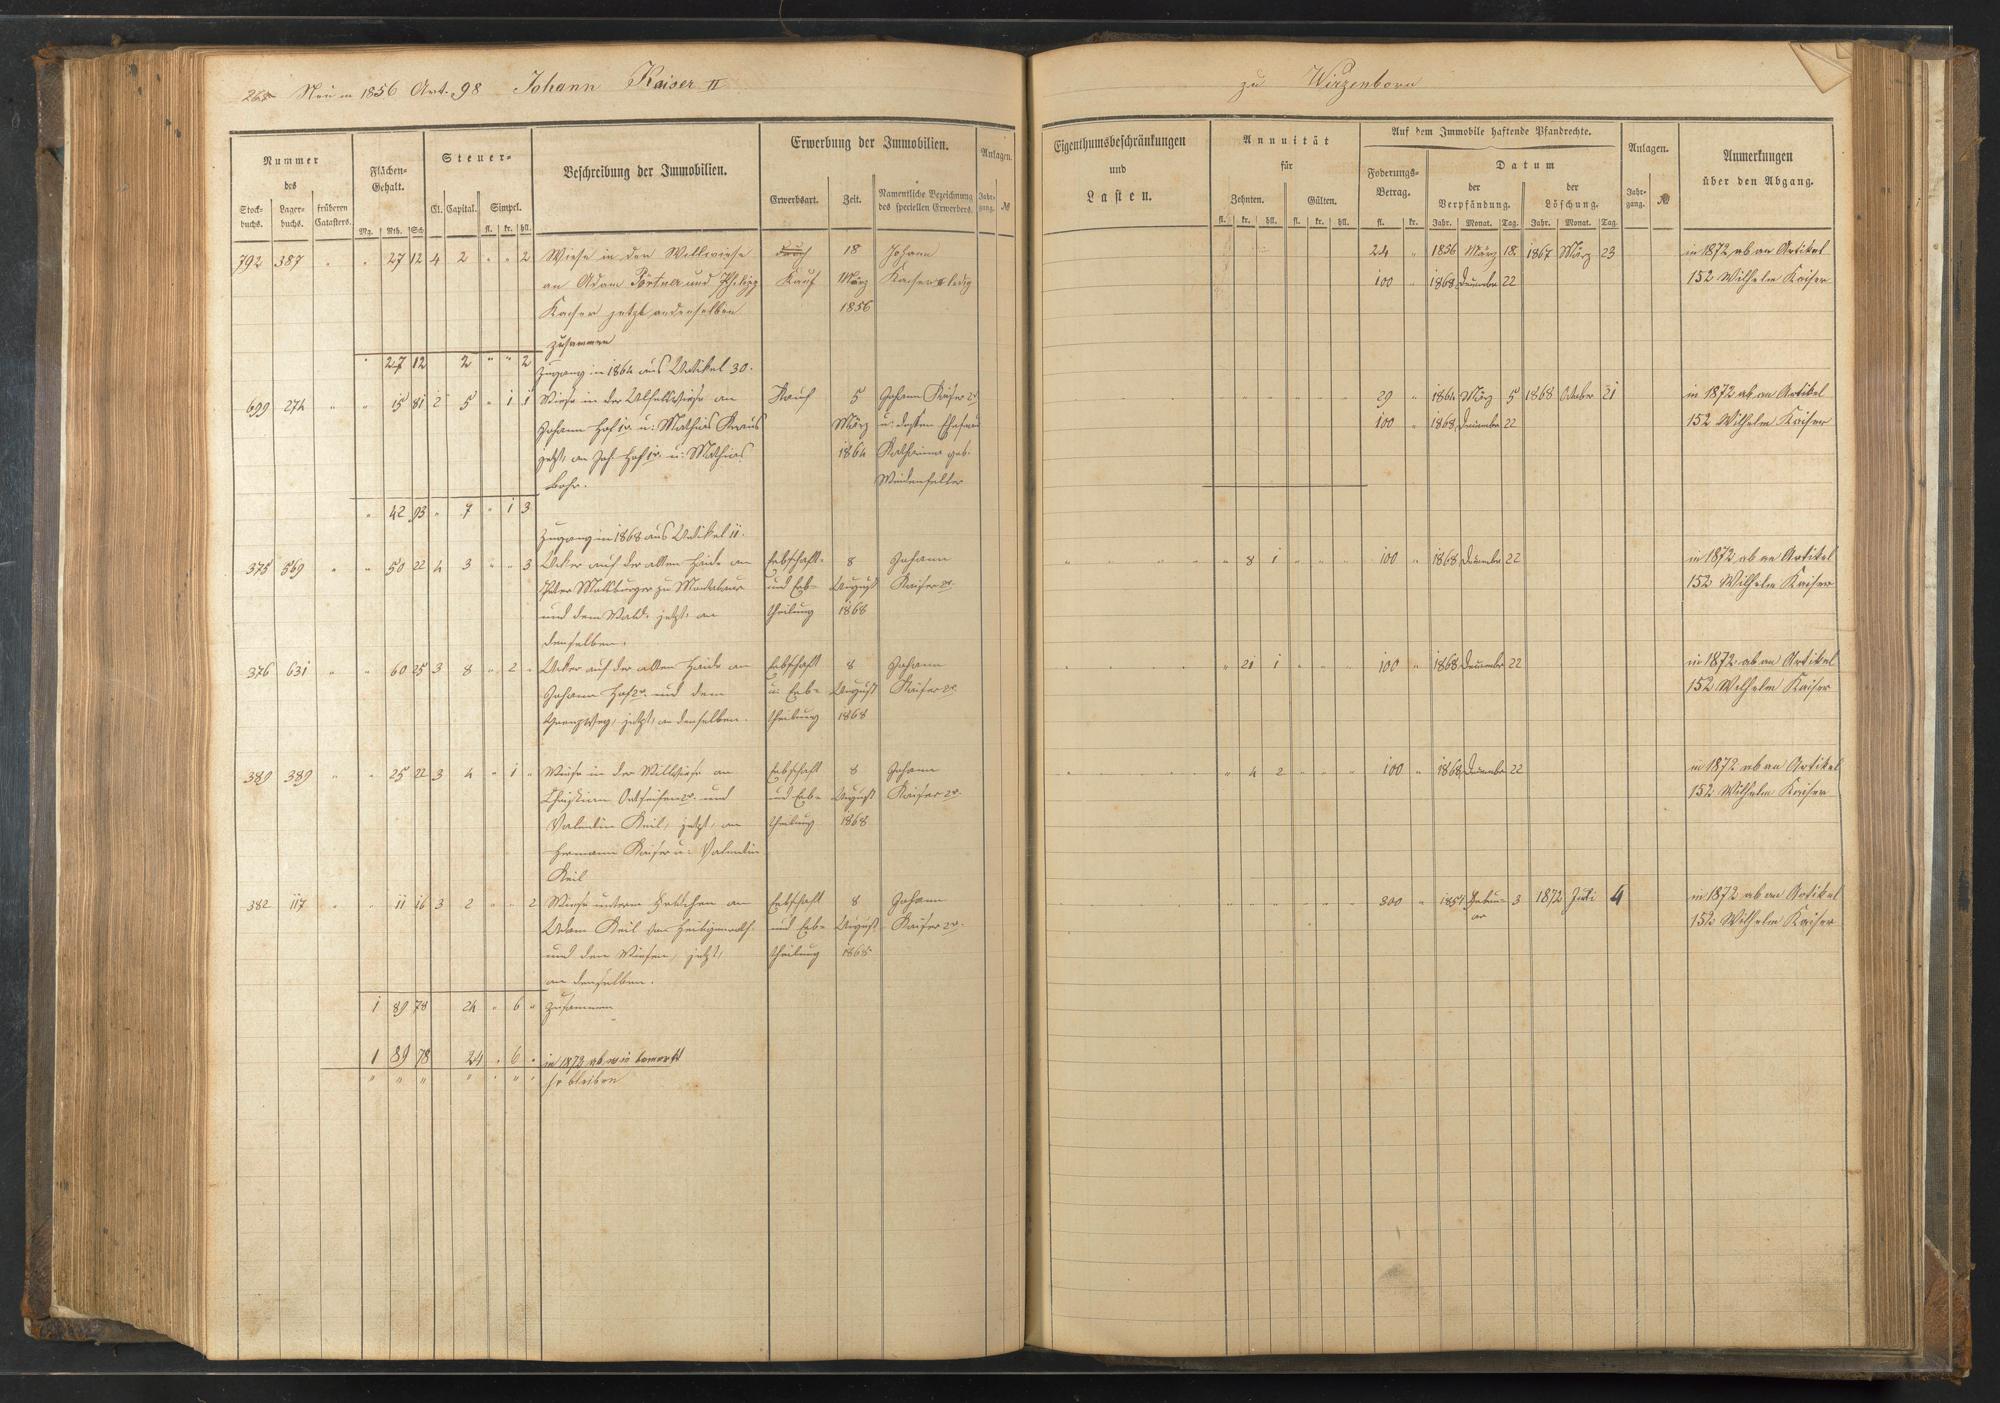 268 Neu in 1856 Art. 98 Johann Kaiser II
zu Wirzenborn
Nummer des
Stock-buchs. Lager-buchs. früheren Catasters.
Flächen-Gehalt.
Mg. Rth. Sch
Steuer-
Cl. Capital. Simpel.
fl. kr. hll.
Beschreibung der Immobilien.
Erwerbung der Immobilien.
Erwerbsart. Zeit. Namentliche Bezeichnung des speciellen Erwerbers.
Anlagen.
Jahr-gang. №
Eigenthumsbeschränkungen
und
Lasten.
Annuität
für
Zehnten. Gülten.
fl. kr. hll. fl. kr. hll.
Auf dem Immobile haftende Pfandrechte.
Foderungs-Betrag.
fl. kr.
Datum
der Verpfändung. der Löschung.
Jahr. Monat. Tag. Jahr. Monat. Tag.
Anlagen.
Jahr-gang. №
Anmerkungen
über den Abgang.
792 387 " " 27 12 4 2 " " 2 Wiese in der Wellwiese Kauf 18 Johann 24 " 1856 März 18. 1867 März 23 in 1872 ab an Artikel
an Adam und Philipp März Kaiser II ledig 100 " 1868 December 22 152 Wilhelm Kaiser
Kaiser jetzt an denselben 1856
zusammen
" 27 12 2 " " 2
Zugang in 1864 aus Artikel 30.
699 274 " " 15 81 2 5 " 1 1 Wiese in der an Kauf 5 Johann Kaiser 2r 29 " 1864 März 5 1868 October 21 in 1872 ab an Artikel
Johann Hof 1r. u: Mathias Kraus März u. dessen Ehefrau 100 " 1868 December 22 152 Wilhelm Kaiser
jetzt, an Joh. Hof 1r. u: Mathias 1864 Katharina geb.
" 42 93 " 7 " 1 3
Zugang in 1868 aus Artikel 11.
375 569 " " 50 22 4 3 " " 3 Acker auf der alten Haide an Erbschaft- 8 Johann " 8 1 " " " 100 " 1868 December 22 in 1872 ab an Artikel
Peter zu Montabaur und Erb- August Kaiser 2r. 152 Wilhelm Kaiser
und dem Wald, jetzt, an theilung 1868
denselben.
376 631 " " 60 25 3 8 " 2 " Acker auf der alten Haide an Erbschaft 8 Johann " 21 1 " " " 100 " 1868 December 22 in 1872 ab an Artikel
Johann Hof 2r. und dem u: Erb- August Kaiser 2r. 152 Wilhelm Kaiser
jetzt, an denselben. theilung 1868
389 389 " " 25 22 3 4 " 1 " Wiese in der Wellwiese an Erbschaft 8 Johann " 4 2 " " " 100 " 1868 December 22 in 1872 ab an Artikel
Christian 2r. und und Erb- August Kaiser 2r. 152 Wilhelm Kaiser
Valentin Keil, jetzt, an theilung 1868
Hermann Kaiser u: Valentin
Keil
382 117 " " 11 16 3 2 " " 2 Wiese unterm an Erbschaft 8 Johann 300 " Februar 3 1872 Juli 4 in 1872 ab an Artikel
Adam Keil von Heiligenroth und Erb- August Kaiser 2r. 152 Wilhelm Kaiser
und den Wiesen, jetzt, theilung 1868
an denselben.
1 89 78 24 " 6 " Zusammen
1 89 78 24 " 6 " in 1872 ab wie bemerkt
" " " " " " " so bleiben